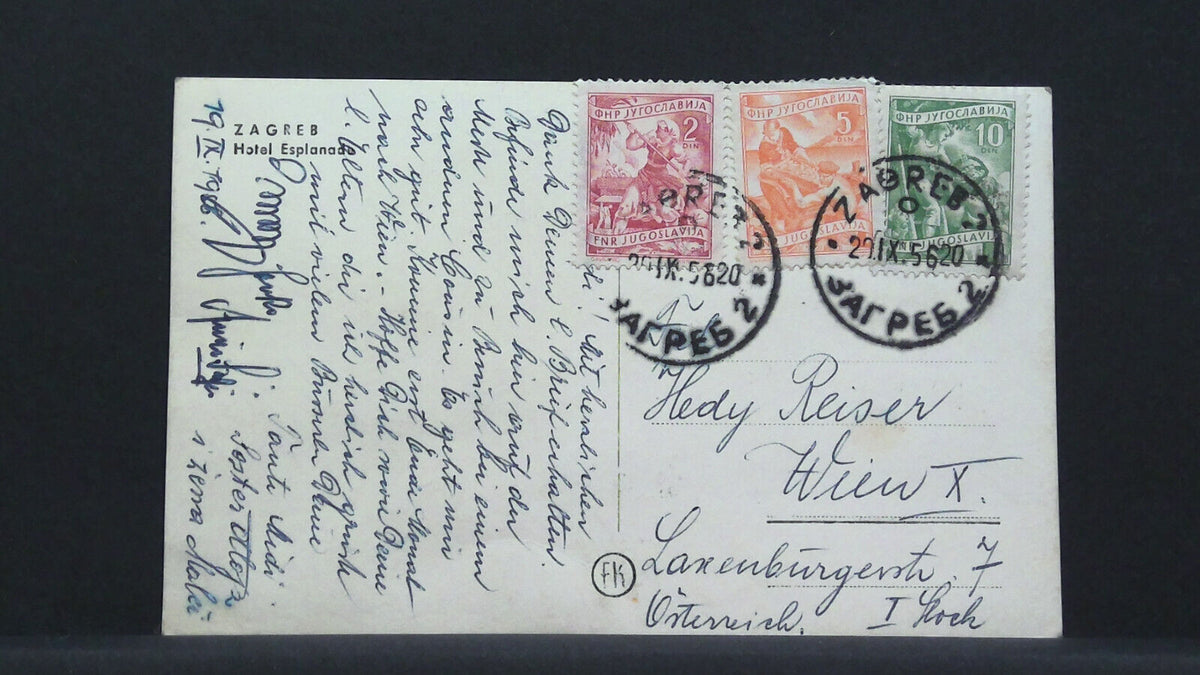 ZAGREB
Hotel Esplanade
19. IX. 1956.
Mit herzlichen
Dank Deinen l. Brief erhalten.
Befinde mich hier auf der
Messe und zu Besuch bei einem
Cousin. Es geht mir
sehr gut. Komme erst Ende Monat
nach Wien. - Hoffe Dich wie Deine
l. Eltern die ich herzlich
mit vielen Bussen Deine
Tante Midi.
i žena
ФНР ЈУГОСЛАВИЈА
2
DIN
FNR JUGOSLAVIJA
ФНР ЈУГОСЛАВИЈА
5
DIN
JUGOSLAVIJA
ФНР ЈУГОСЛАВИЈА
10
DIN
JUGOSLAVIJA
ZAGREB 2
20.IX.56 20
ЗАГРЕБ 2
ZAGREB 2
20.IX.56 20
ЗАГРЕБ 2
Hedy Reiser
Wien X.
FK
Laxenburgerstr. 7
Österreich. I Stock